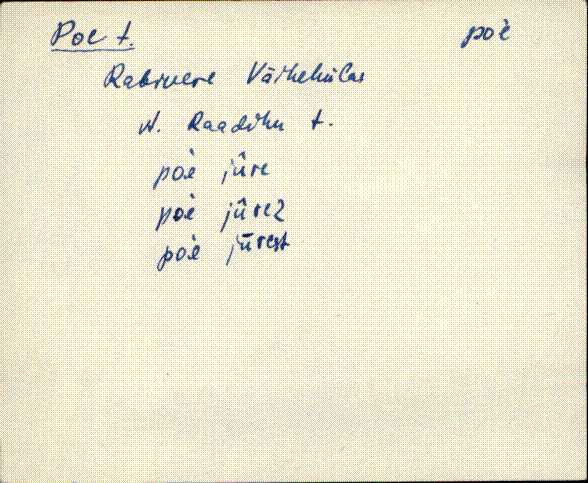 Poe t. poè
Rabivere Väikekülas
n. Raadiku t.
poè jûre
poè jûrez
poè jūrest